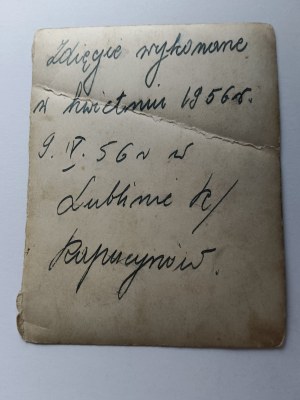 Zdięcie wykonane
w kwietniu 1956r.
9. IV. 56r w
Lublinie k/
Kapucynów.